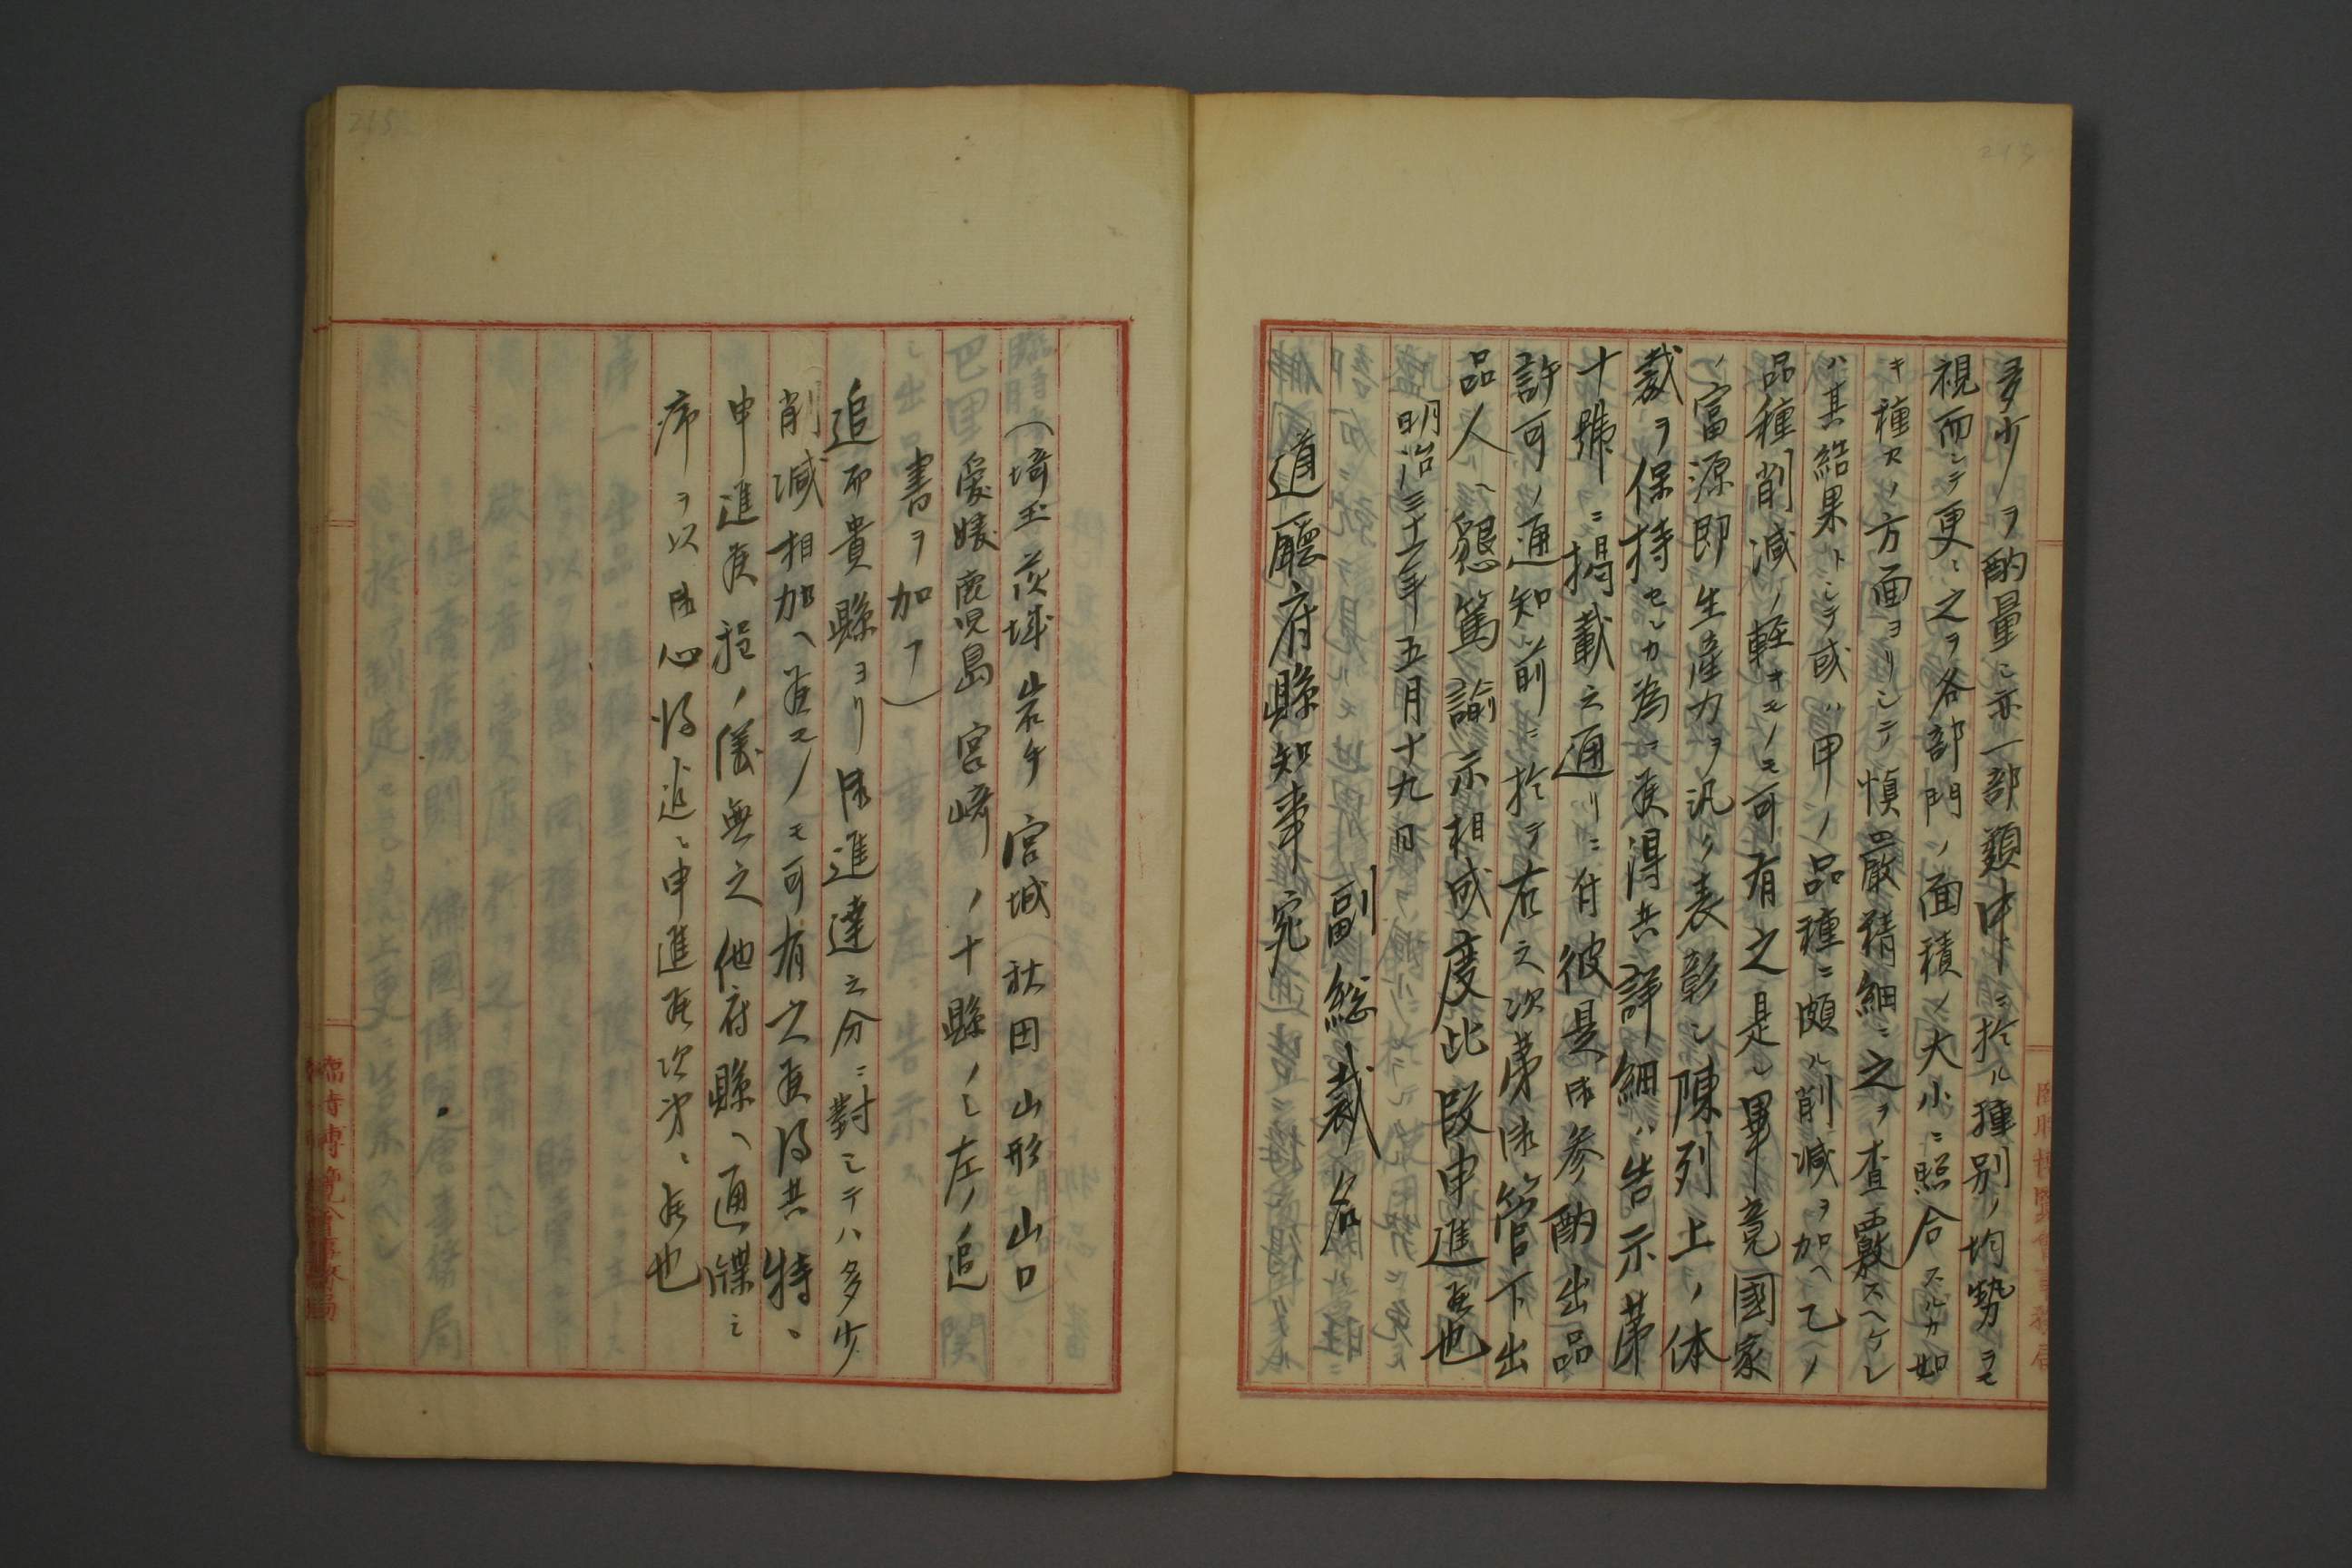 多少ヲ酌量シ亦一部類中ニ於ル種別ノ均勢ヲモ
視而シテ更ニ之ヲ各部門ノ面積ノ大小ニ照合スルカ如
キ種々ノ方面ヨリシテ慎重嚴精細ニ之ヲ査覈スヘケレ
ハ其結果トシテ或ハ甲ノ品種ニ頗ル削減ヲ加ヘ乙ノ
品種削減ノ軽キモノモ可有之是レ畢竟國家
ノ富源即生產力ヲ汎ク表彰シ陳列上ノ体
裁ヲ保持センカ為ニ候得共詳細ハ告示第
十號ニ掲載之通リニ付彼是御参酌出品
許可ノ通知前ニ於テ右之次第御管下出
品人ヘ懇篤諭示相成度此段申進候也
明治三十二年五月十九日
副総裁名
道廳府縣知事宛
(埼玉茨城岩手宮城秋田山形山口
愛媛鹿児島宮崎ノ十縣ノミ左ノ追
書ヲ加フ)
追而貴縣ヨリ御進達之分ニ對シテハ多少
削減相加ヘ候モノモ可有之候得共特ニ
申進候程ノ儀無之他府縣ヘ通牒ニ
序ヲ以御心得迄ニ申進候次第ニ候也
臨時博覧會事務局
臨時博覧會事務局